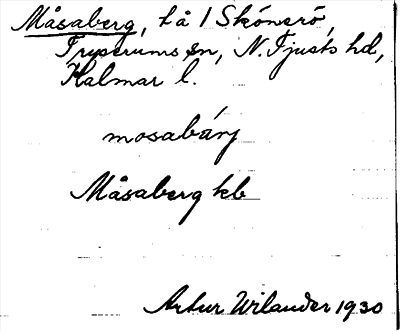 Måsaberg, t å 1 Skönerö,
Tryserums sn, N. Tjusts hd,
Kalmar l.
mosabärj
Måsaberg kb
Artur Wilander 1930